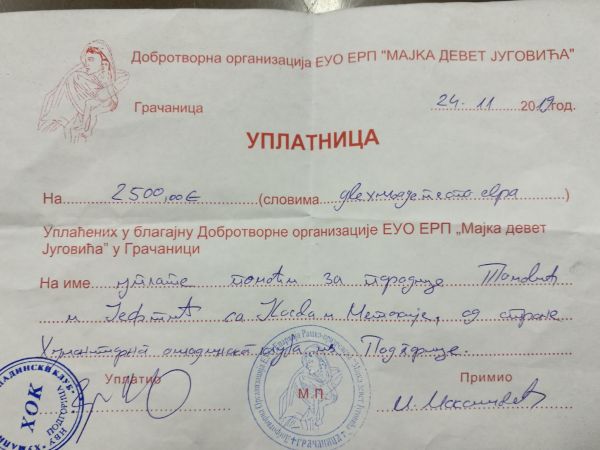 Добротворна организација ЕУО ЕРП "МАЈКА ДЕВЕТ ЈУГОВИЋА"
Грачаница 24. 11 2019год.
УПЛАТНИЦА
На 2500,00€ (словима двехиљадепестo евра)
Уплаћених у благајну Добротворне организације ЕУО ЕРП „Мајка девет
Југовића" у Грачаници
На име уплате помоћи за породице Томовић
и Јефтић са Косова и Метохије, од стране
Подгорице.
Уплатио Примио
М.П.
ХОК
ГРАЧАНИЦА